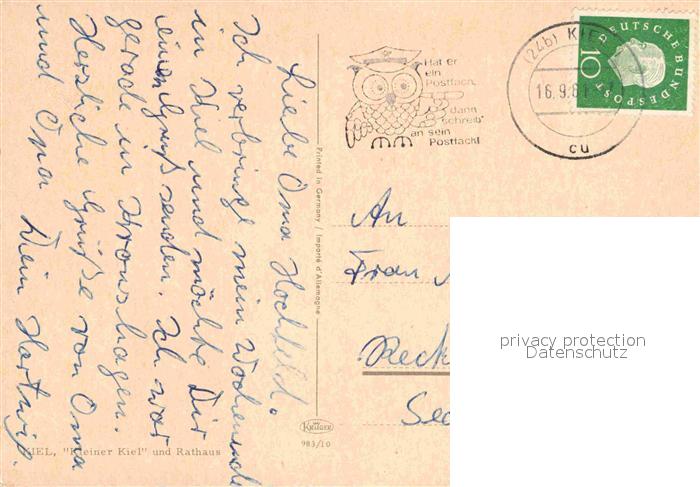 Liebe Oma Hochfeld.
Ich verbringe mein Wochenende
in Kiel und möchte Dir
einen Gruß senden. Ich war
gerade in Kronshagen.
Herzliche Grüße von Oma
und Opa Dein Hartwig.
KIEL, "Kleiner Kiel" und Rathaus
Printed in Germany / Importé d'Allemagne
KRÜGER
983/10
Hat er
ein
Postfach,
dann
schreib'
an sein
Postfach!
(24b) KIEL
16.9.61
cu
DEUTSCHE BUNDESPOST
10
An
Frau
Reck
privacy protection
Datenschutz